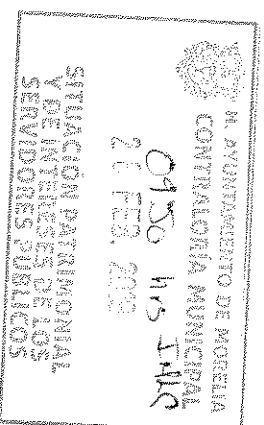 H. AYUNTAMIENTO DE MORELIA
CONTRALORIA MUNICIPAL
0950 hrs
20 FEB.
SITUACION PATRIMONIAL
Y DE INTERESES DE LOS
SERVIDORES PUBLICOS